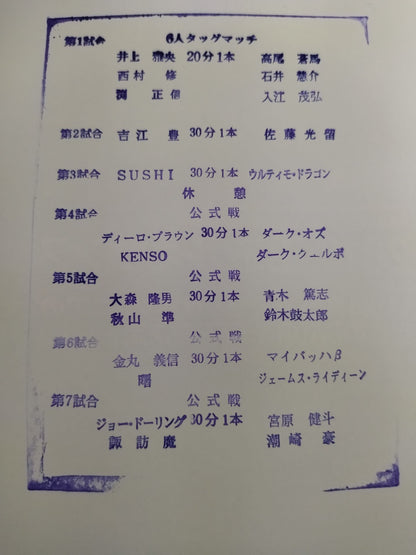 第1試合 6人タッグマッチ
井上 雅央 20分1本 高尾 蒼馬
西村 修 石井 慧介
渕 正信 入江 茂弘
第2試合 吉江 豊 30分1本 佐藤光留
第3試合 SUSHI 30分1本 ウルティモ・ドラゴン
休 憩
第4試合 公式戦
ディーロ・ブラウン 30分1本 ダーク・オズ
KENSO ダーク・クエルボ
第5試合 公式戦
大森 隆男 30分1本 青木 篤志
秋山 準 鈴木鼓太郎
第6試合 公式戦
金丸 義信 30分1本 マイバッハβ
曙 ジェームス・ライディーン
第7試合 公式戦
ジョー・ドーリング 30分1本 宮原 健斗
諏訪魔 潮崎 豪